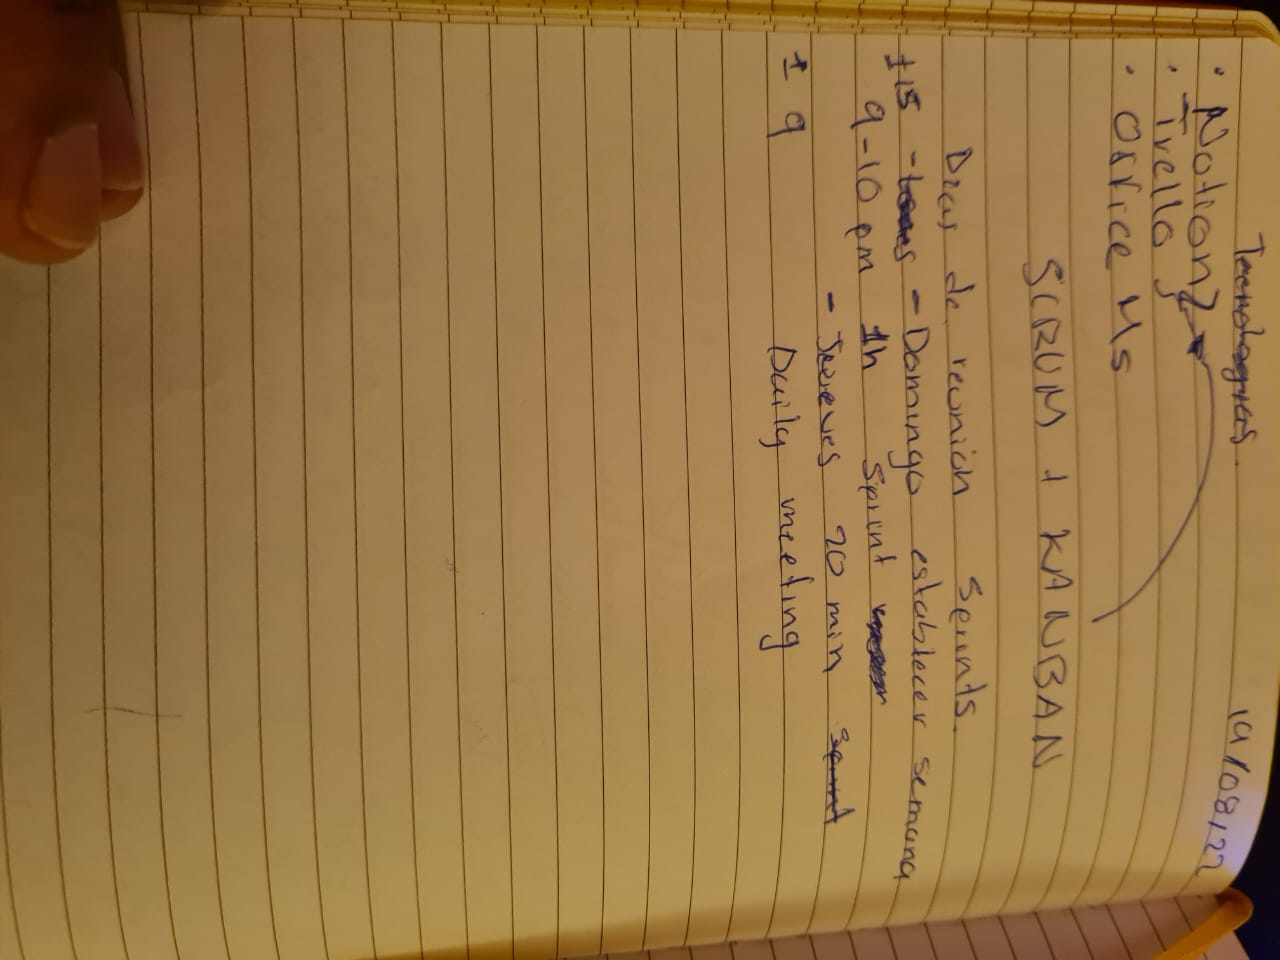 Tecnologias.
19/08/22
• Notion
• Trello
• Office Ms
SCRUM + KANBAN
Dias de reunion Sprints.
±15 - - Domingo establecer semana
9-10 pm 1h Sprint
- Jueves 20 min Sprint
± 9 Daily meeting